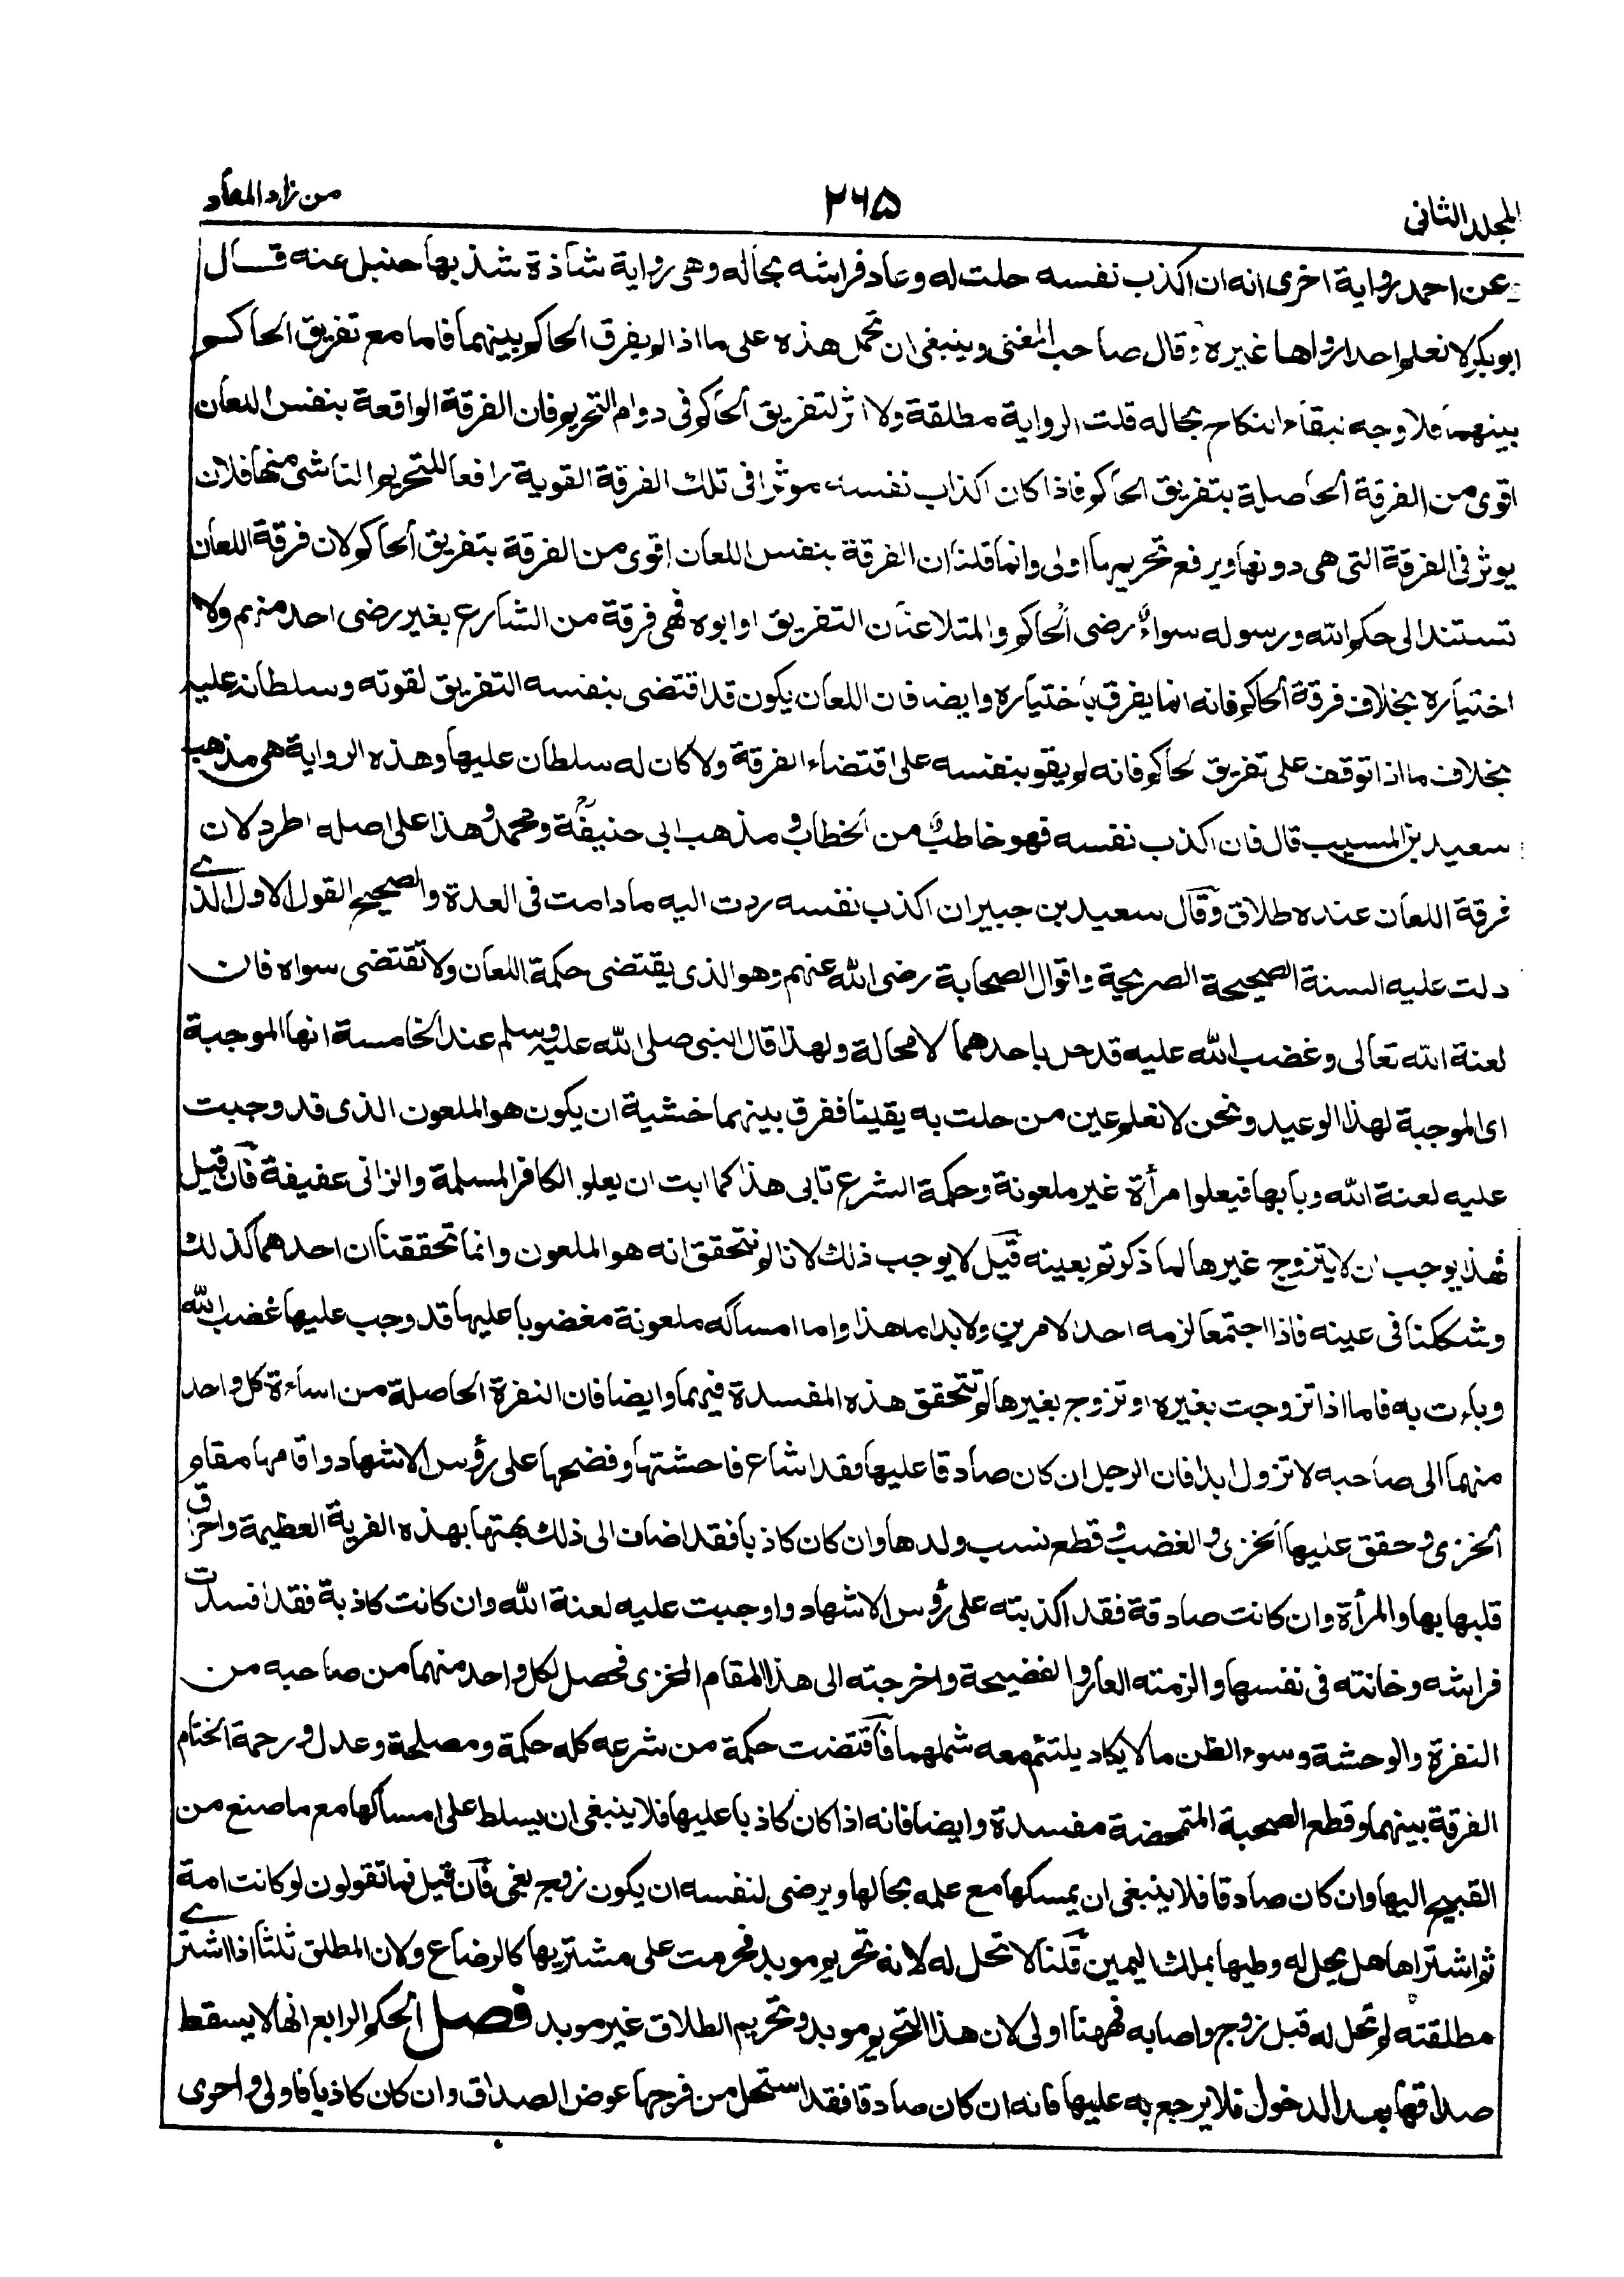 المجلد الثانى
٢٦٥
من زاد المعاد
عن احمد رواية اخرى انه ان اكذب نفسه حلت له وعاد فراشه بحاله وهى رواية شاذة شذ بها حنبل عنه قال
ابو بكر لا نعلم احدا رواها غيره وقال صاحب المغنى وينبغى ان تحمل هذه على ما اذا لم يفرق الحاكم بينهما فاما مع تفريق الحاكم
بينهما فلا وجه لبقاء النكاح بحاله قلت الرواية مطلقة ولا اثر لتفريق الحاكم فى دوام التحريم فان الفرقة الواقعة بنفس اللعان
اقوى من الفرقة الحاصلة بتفريق الحاكم فاذا كان اكذاب نفسه موثرا فى تلك الفرقة القوية رافعا للتحريم الناشى منها فلان
يوثر فى الفرقة التى هى دونها ويرفع تحريمها اولى وانما قلنا ان الفرقة بنفس اللعان اقوى من الفرقة بتفريق الحاكم لان فرقة اللعان
تستند الى حكم الله ورسوله سواء رضى الحاكم والمتلاعنان التفريق او ابوه فهى فرقة من الشارع بغير رضى احد منهم ولا
اختياره بخلاف فرقة الحاكم فانه انما يفرق باختياره وايضا فان اللعان يكون قد اقتضى بنفسه التفريق لقوته وسلطانه عليه
بخلاف ما اذا توقف على تفريق الحاكم فانه لم يقو بنفسه على اقتضاء الفرقة ولا كان له سلطان عليها وهذه الرواية هى مذهب
سعيد بن المسيب قال فان اكذب نفسه فهو خاطب من الخطاب و مذهب ابى حنيفة ومحمد وهذا على اصله اطرد لان
فرقة اللعان عنده طلاق وقال سعيد بن جبير ان اكذب نفسه ردت اليه ما دامت فى العدة والصحيح القول الاول الذى
دلت عليه السنة الصحيحة الصريحة واقوال الصحابة رضى الله عنهم وهو الذى يقتضى حكمة اللعان ولا تقتضى سواه فان
لعنة الله تعالى وغضب الله عليه قد حل باحدهما لا محالة ولهذا قال النبى صلى الله عليه وسلم عند الخامسة انها الموجبة
اى الموجبة لهذا الوعيد ونحن لا نعلم عين من حلت به يقينا ففرق بينهما خشية ان يكون هو الملعون الذى قد وجبت
عليه لعنة الله وباء بها فيعلوا مرأة غير ملعونة وحكمة الشرع تابى هذا كما ابت ان يعلو الكافر المسلمة والزانى عفيفة فان قيل
فهذا يوجب ان لا يتزوج غيرها لما ذكرتم بعينه قيل لا يوجب ذلك لانا لم نتحقق انه هو الملعون وانما تحققنا ان احدهما كذلك
وشككنا فى عينه فاذا اجتمعا لزمه احد الامرين ولابد اما هذا واما امساكه ملعونة مغضوبا عليها قد وجب عليها غضب الله
وباءت به فاما اذا تزوجت بغيره او تزوج بغيرها لم تتحقق هذه المفسدة فيهما وايضا فان النفرة الحاصلة من اساءة كل واحد
منهما الى صاحبه لا تزول ابدا فان الرجل ان كان صادقا عليها فقد اشاع فاحشتها وفضحها على رؤس الاشهاد واقامها مقام
الخزى وحقق عليها الخزى والغضب و قطع نسب ولدها وان كان كاذبا فقد اضاف الى ذلك بهتها بهذه الفرية العظيمة واحراق
قلبها بها والمرأة وان كانت صادقة فقد اكذبته على رؤس الاشهاد واوجبت عليه لعنة الله وان كانت كاذبة فقد افسدت
فراشه وخانته فى نفسها والزمته العار والفضيحة واخرجته الى هذا المقام المخزى فحصل لكل واحد منهما من صاحبه من
النفرة والوحشة وسوء الظن ما لا يكاد يلتئم معه شملهما فاقتضت حكمة من شرعه كله حكمة ومصلحة وعدل و رحمة انحتام
الفرقة بينهما وقطع الصحبة المتمحضة مفسدة وايضا فانه اذا كان كاذبا عليها فلا ينبغى ان يسلط على امساكها مع ما صنع من
القبيح اليها وان كان صادقا فلا ينبغى ان يمسكها مع علمه بحالها ويرضى لنفسه ان يكون زوج بغى فان قيل فما تقولون لو كانت امة
ثم اشتراها هل يحل له وطيها بملك اليمين قلنا لا تحل له لانه تحريم موبد فحرمت على مشتريها كالرضاع ولان المطلق ثلثا اذا اشترى
مطلقته لم تحل له قبل زوج واصابه فههنا اولى لان هذا التحريم موبد و تحريم الطلاق غير موبد فصل الحكم الرابع انها لا يسقط
صداقها بعد الدخول فلا يرجع به عليها فانه ان كان صادقا فقد استحل من فرجها عوض الصداق وان كان كاذبا فاولى و احرى